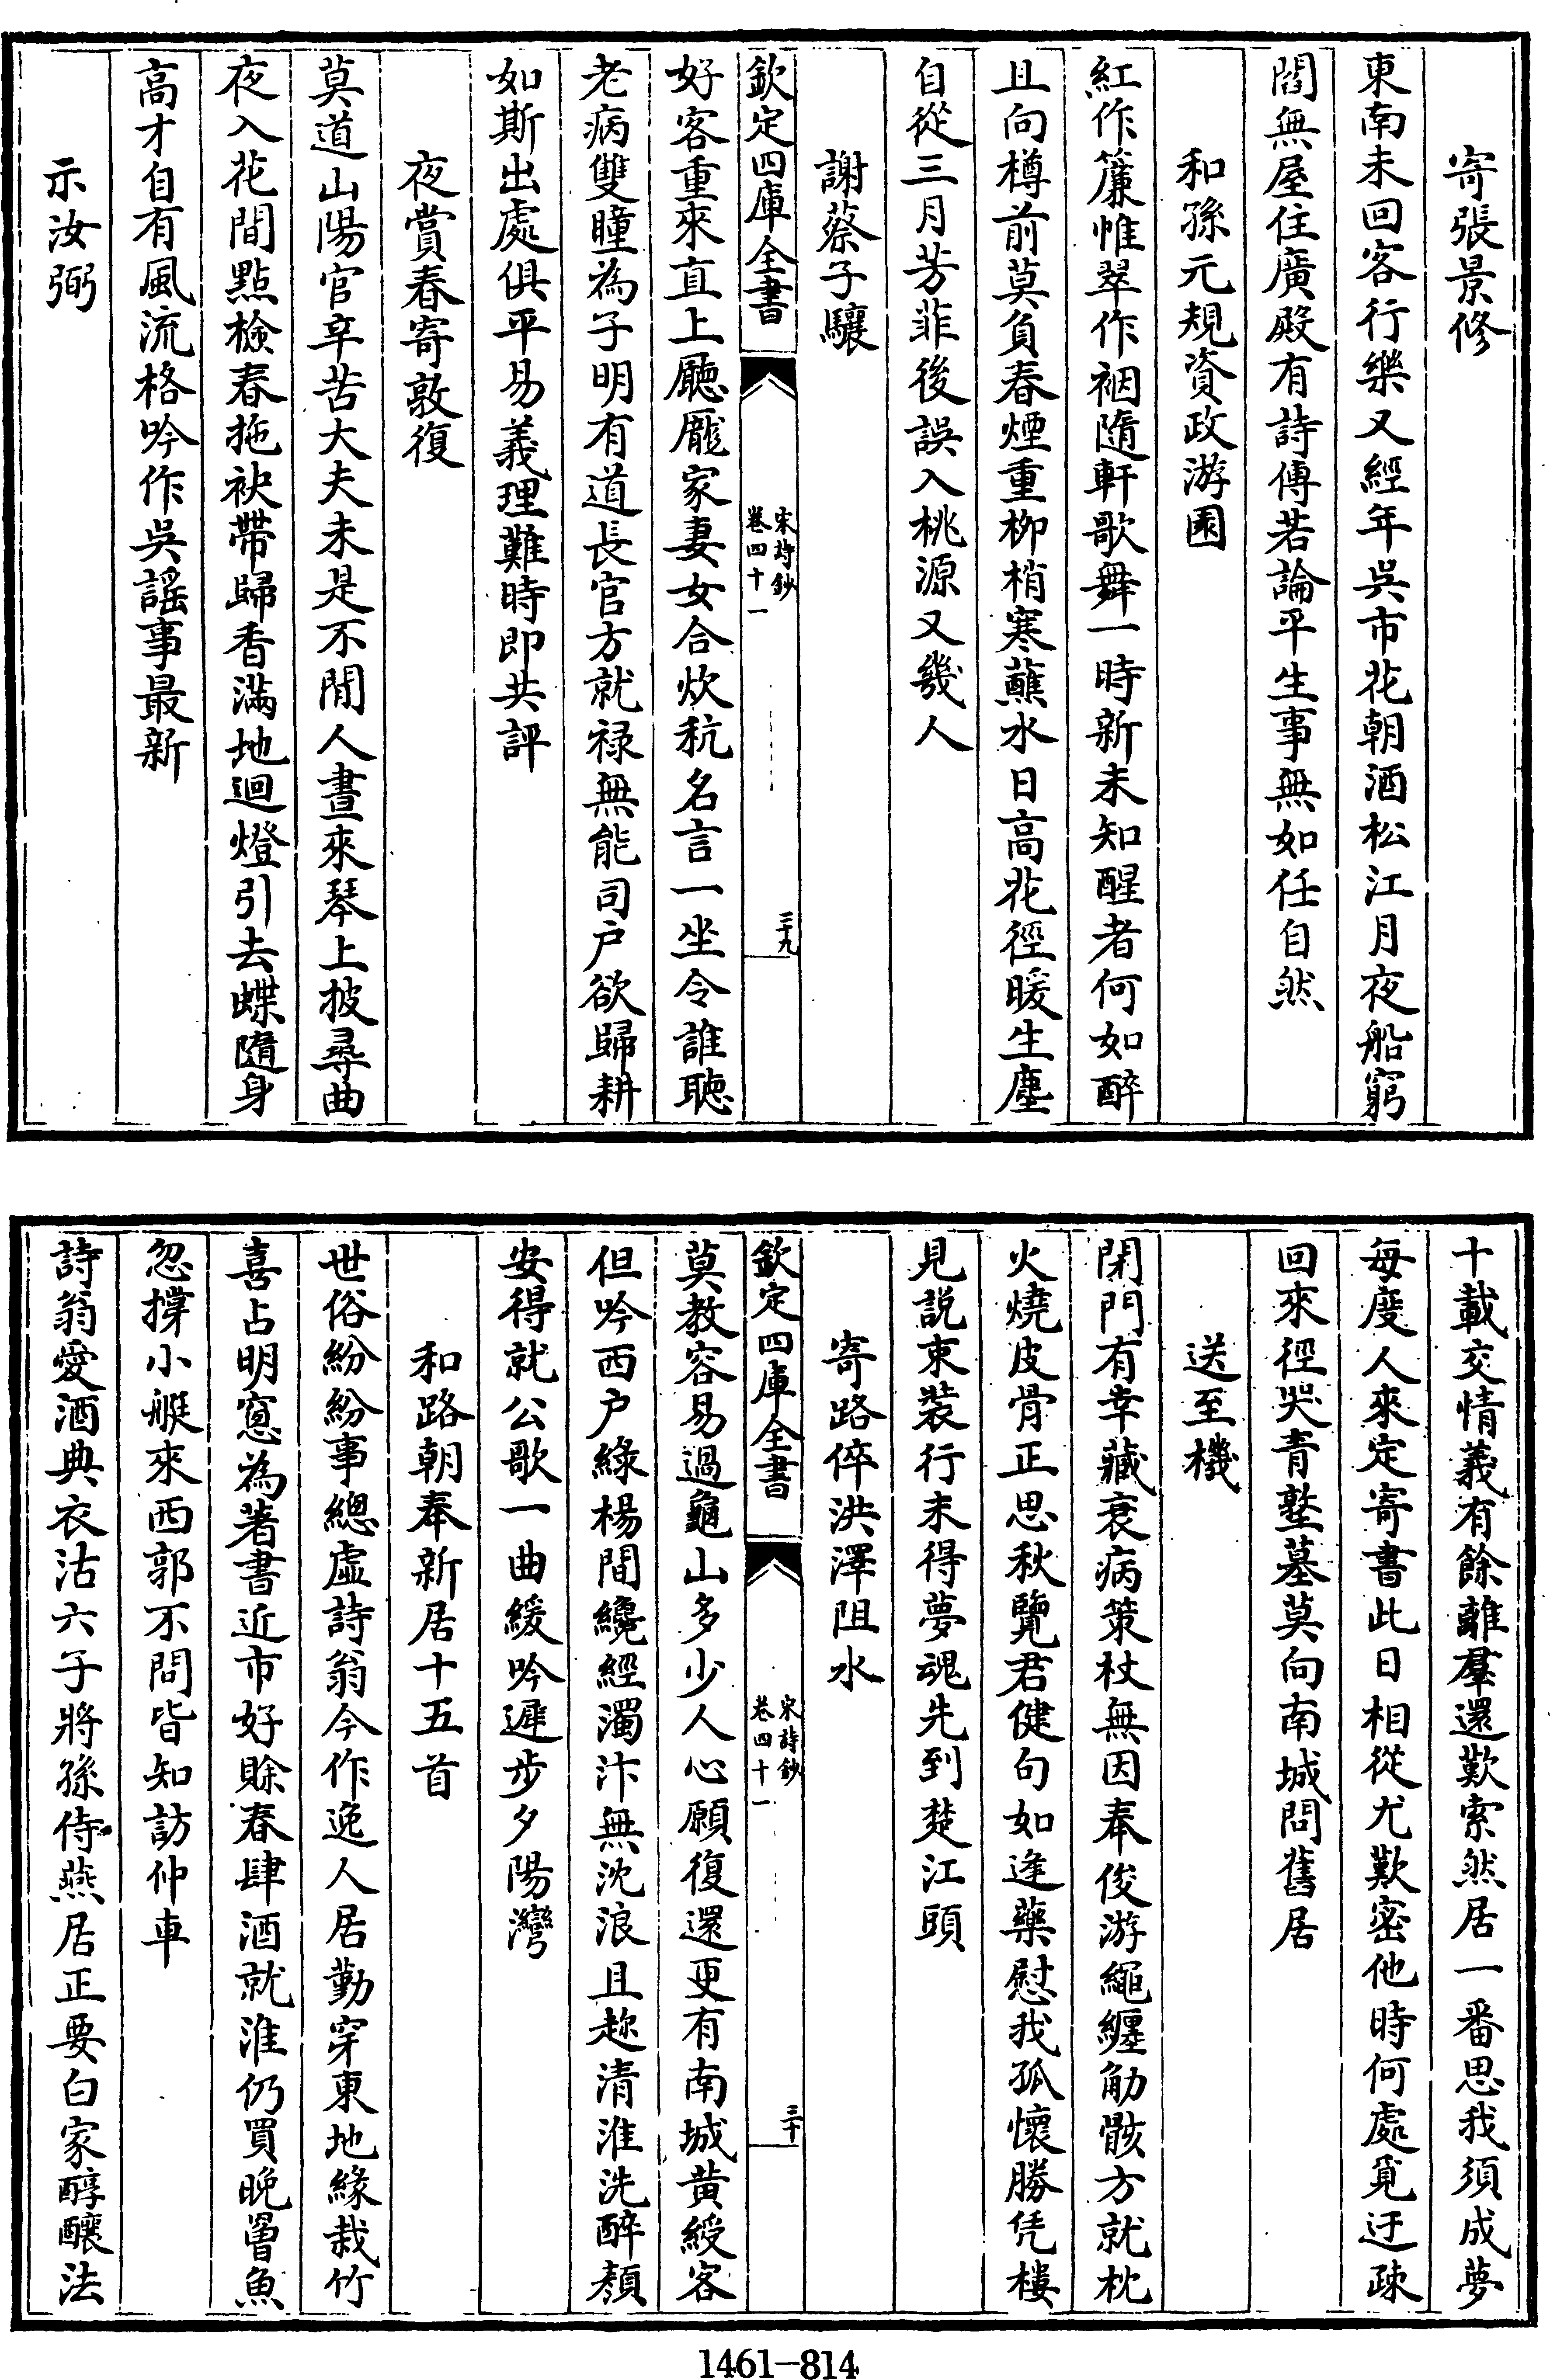 寄張景修
東南未回客行樂又經年吳市花朝酒松江月夜船窮
閻無屋住廣殿有詩傳若論平生事無如任自然
和孫元規資政游園
紅作簾帷翠作裀隨軒歌舞一時新未知醒者何如醉
且向樽前莫負春煙重柳梢寒蘸水日高花徑暖生塵
自從三月芳菲後誤入桃源又幾人
謝蔡子驤
欽定四庫全書
宋詩鈔
卷四十一
二十九
好客重來直上廳厖家妻女合炊秔名言一坐令誰聽
老病雙瞳為子明有道長官方就禄無能司户欲歸耕
如斯出處俱平易義理難時即共評
夜賞春寄敦復
莫道山陽官辛苦大夫未是不閒人晝來琴上披尋曲
夜入花間點檢春拖袂帶歸香滿地迴燈引去蝶隨身
高才自有風流格吟作吳謡事最新
示汝弼
十載交情義有餘離羣還歎索然居一番思我須成夢
每度人來定寄書此日相從尤歎密他時何處覓迂疎
回來徑哭青塾墓莫向南城問舊居
送至機
閑門有幸藏衰病策杖無因奉俊游繩纒觔骸方就枕
火燒皮骨正思秋覽君健句如逢藥慰我孤懷勝凭樓
見説束裝行未得夢魂先到楚江頭
寄路倅洪澤阻水
欽定四庫全書
宋詩鈔
卷四十一
三十
莫教容易過龜山多少人心願復還更有南城黄綬客
但吟西户綠楊間纔經濁汴無沈浪且趂清淮洗醉顏
安得就公歌一曲緩吟遲步夕陽灣
和路朝奉新居十五首
世俗紛紛事總虛詩翁今作逸人居勤穿東地緣栽竹
喜占明窻為著書近市好賒春肆酒就淮仍買晚罾魚
忽撑小艇來西郭不問皆知訪仲車
詩翁愛酒典衣沽六子將孫侍燕居正要白家醇釀法
1461—814